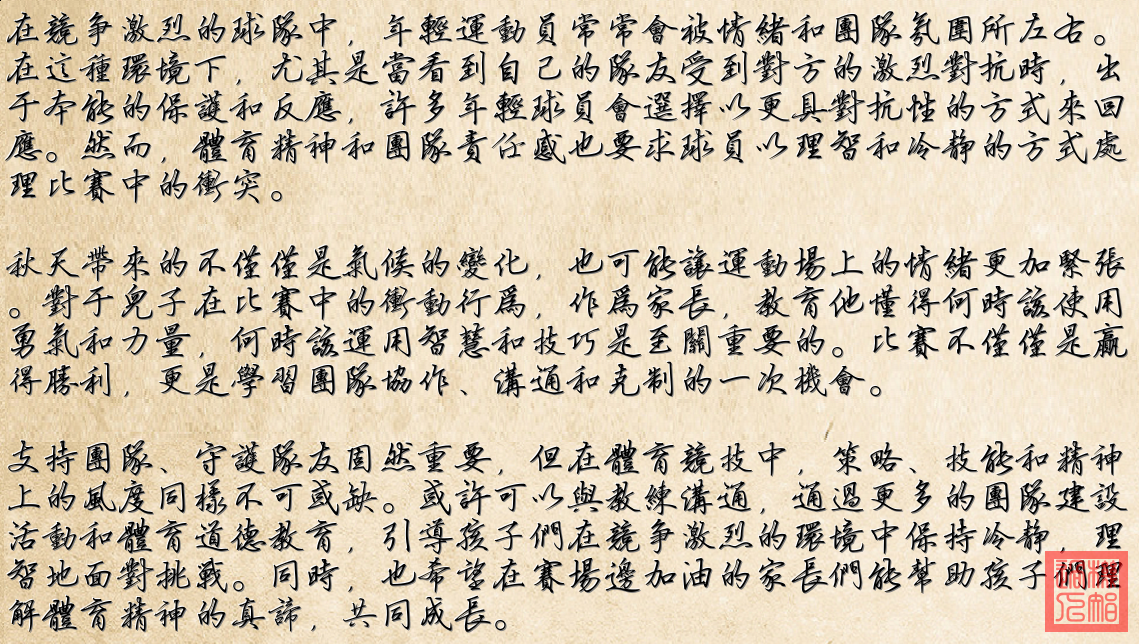 在競爭激烈的球隊中，年輕運動員常常會被情緒和團隊氛圍所左右。
在這種環境下，尤其是當看到自己的隊友受到對方的激烈對抗時，出
于本能的保護和反應，許多年輕球員會選擇以更具對抗性的方式來回
應。然而，體育精神和團隊責任感也要求球員以理智和冷靜的方式處
理比賽中的衝突。
秋天帶來的不僅僅是氣候的變化，也可能讓運動場上的情緒更加緊張
。對于兒子在比賽中的衝動行爲，作爲家長，教育他懂得何時該使用
勇氣和力量，何時該運用智慧和技巧是至關重要的。比賽不僅僅是贏
得勝利，更是學習團隊協作、溝通和克制的一次機會。
支持團隊、守護隊友固然重要，但在體育競技中，策略、技能和精神
上的風度同樣不可或缺。或許可以與教練溝通，通過更多的團隊建設
活動和體育道德教育，引導孩子們在競爭激烈的環境中保持冷靜，理
智地面對挑戰。同時，也希望在賽場邊加油的家長們能幫助孩子們理
解體育精神的真諦，共同成長。